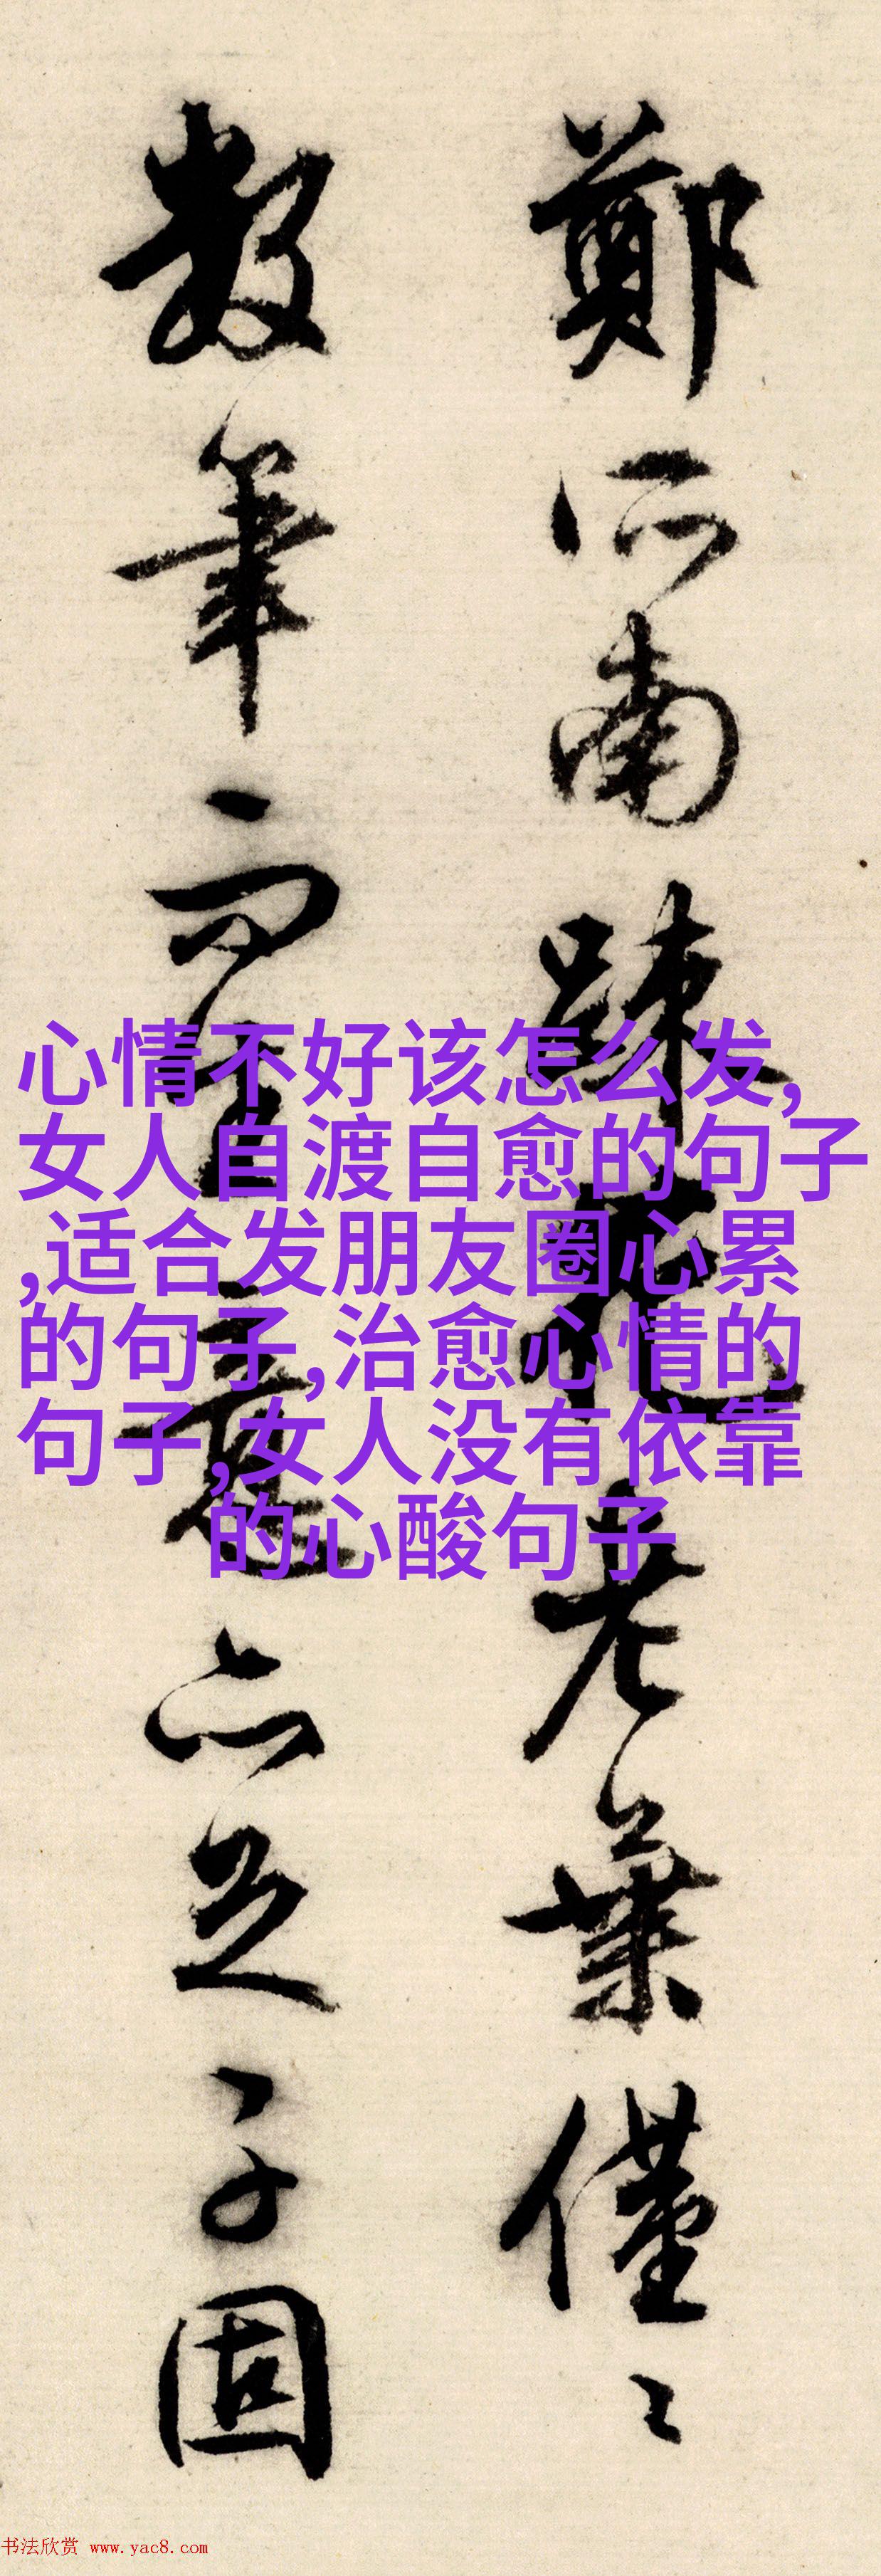 鄭所南疎花老葉僅〻
數筆而生意亦足子固
心情不好该怎么发,
女人自渡自愈的句子
,适合发朋友圈心累
的句子,治愈心情的
句子,女人没有依靠
的心酸句子
书法欣赏 www.yac8.com